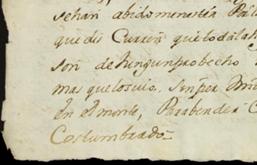 sehan abido menestia Pal
que dis Curren que toda la h
son de Ningun probecho
mas que los uio. sin per
En el monte, Para bender C
Costumbrado